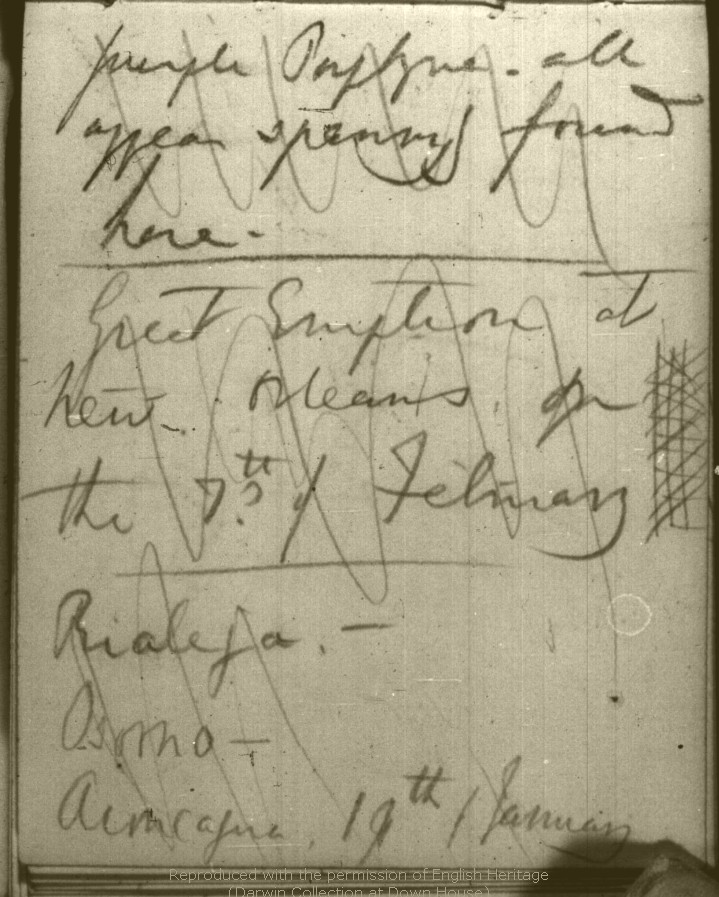 purple Porphyries - all
appear sparingly found
here. -
Great Eruption at
new. Orleans. on
the 7th? of February
Rialeja. —
Osorno —
Aconcagua. 19th of January
Reproduced with the permission of English Heritage
(Darwin Collection at Down House)